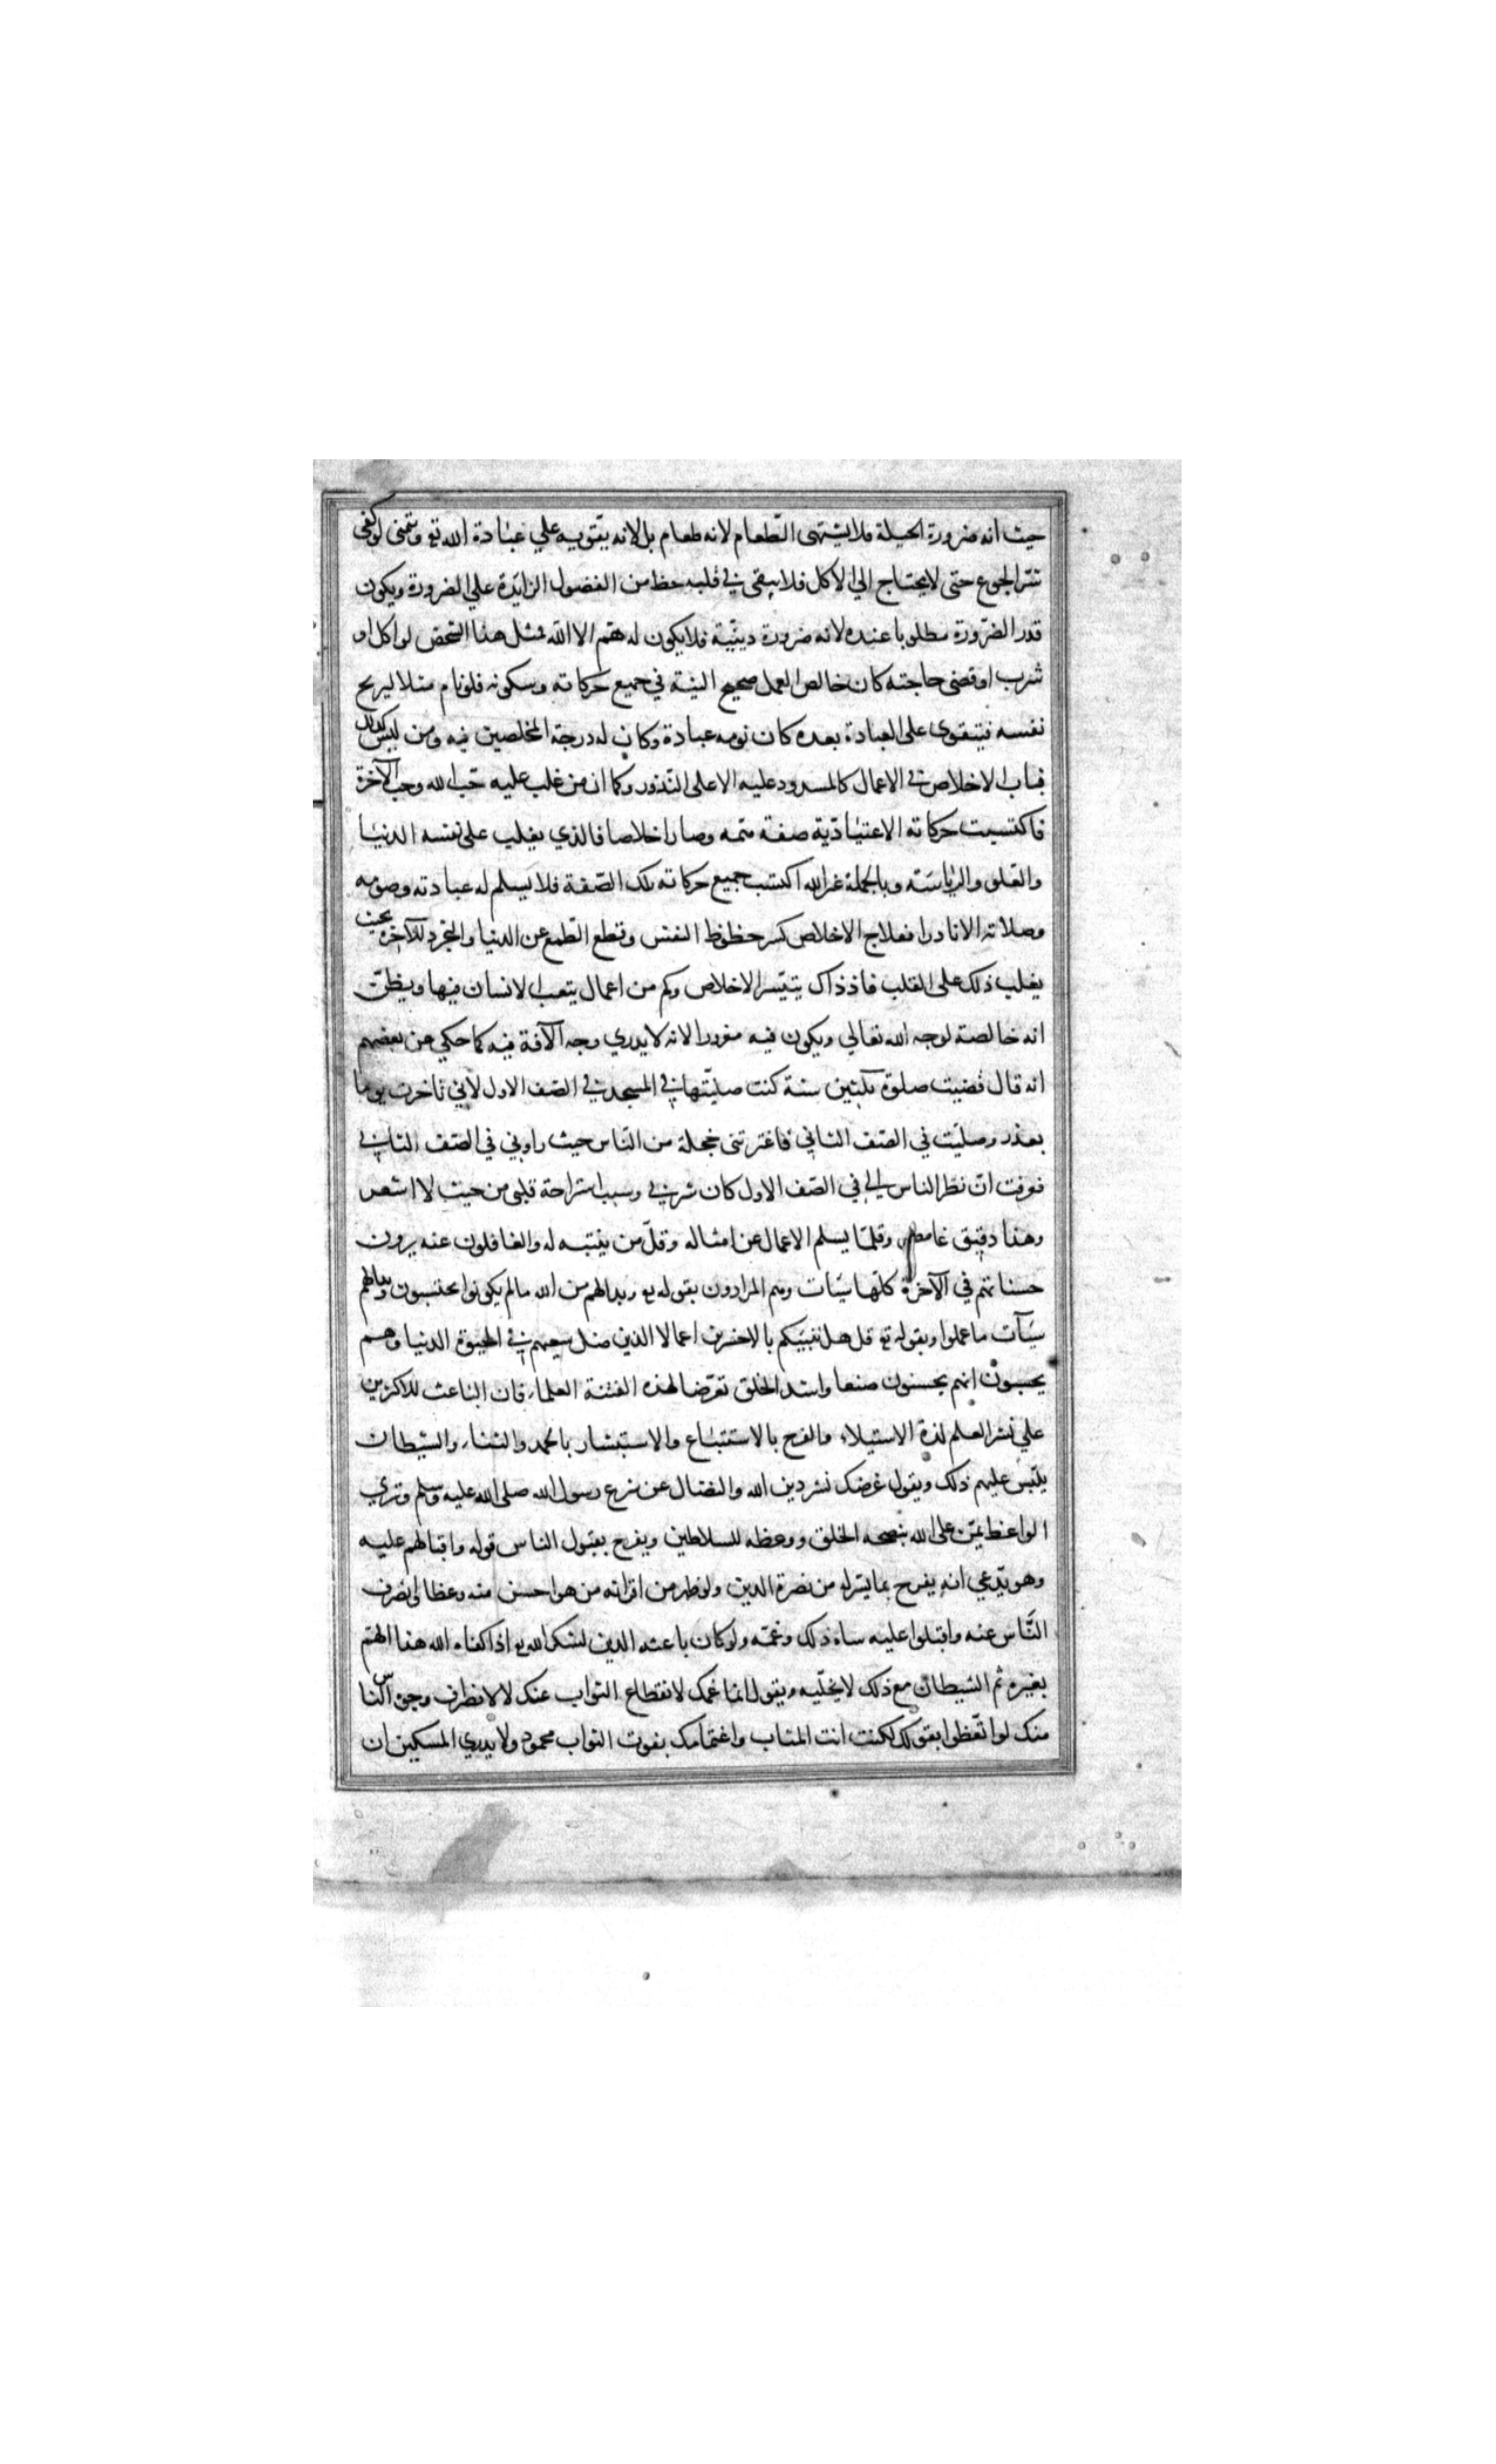 حيث انه ضرورة الجبلة فلا يشتهى الطّعام لانه طعام بل لانه يقويه علي عبادة الله تع ويتمنى لو كفى
شر الجوع حتى لا يحتاج الي الاكل فلا يبقى في قلبه حظ من الفضول الزايدة علي الضرورة ويكون
قدر الضّرورة مطلوبا عنده لانه ضرورة دينيّة فلا يكون له همّ الا الله فمثل هذا الشخص لو اكل او
شرب او قضى حاجته كان خالص العمل صحيح النيّة في جميع حركاته وسكونه فلو نام مثلا ليريح
نفسه فيتقوى على العبادة بعده كان نومه عبادة وكان له درجة المخلصين فيه ومن ليس كذلك
فباب الاخلاص في الاعمال كالمسدود عليه الا على النّدور وكما ان من غلب عليه حبّ الله وحب الآخرة
فاكتسبت حركاته الاعتياديّة صفة همه وصار اخلاصا فالذي يغلب على نفسه الدنيا
والعلو والرياسته وبالجملة غير الله اكتسب جميع حركاته تلك الصّفة فلا يسلم له عبادته وصومه
وصلاته الا نادرا فعلاج الاخلاص كسر حظوظ النفس وقطع الطّمع عن الدنيا والتجرد للآخرة بحيث
يغلب ذلك على القلب فاذ ذاك يتيسّر الاخلاص وكم من اعمال يتعب الانسان فيها ويظنّ
انه خالصة لوجه الله تعالي ويكون فيه مغرورا لانه لا يدري وجه الآفة فيه كما حكي عن بعضهم
انه قال قضيت صلوة ثلثين سنة كنت صليّتها في المسجد في الصّف الاول لاني تاخرت يوما
بعذر وصليّت في الصّف الثاني فاعترتنى خجلة من النّاس حيث راوني في الصّف الثاني
فعرفت انّ نظر الناس اليّ في الصّف الاول كان شرني وسبب استراحة قلبى من حيث لا اشعر
وهذا دقيق غامض وقلمّا يسلم الاعمال عن امثاله وقلّ من ينتبه له والغافلون عنه يرون
حسناتهم في الآخرة كلّها سيّات وهم المرادون بقوله تع وبدالهم من الله مالم يكونوا يحتسبون وبدالهم
سيّآت ما عملوا وبقوله تع قل هل ننبّيكم بالاخسرين اعمالا الذين ضل سعيهم في الحيوة الدنيا وهم
يحسبون انهم يحسنون صنعا واشد الخلق تعرّضا لهذه الفتنة العلماء فان الباعث للاكثرين
علي نشر العلم لذة الاستيلاء والفرح بالاستتباع والاستبشار بالحمد والثناء والشيطان
يلبّس عليهم ذلك ويقول غرضك نشر دين الله والنضال عن شرع رسول الله صلى الله عليه وسلم وتري
الواعظ يمنّ على الله بنصحه الخلق ووعظه للسلاطين ويفرح بقبول الناس قوله واقبالهم عليه
وهو يدّعي انه يفرح بما يسّر له من نصرة الدين ولو ظهر من اقرانه من هو احسن منه وعظا وانصرف
النّاس عنه واقبلوا عليه ساء ذلك وغمّه ولو كان باعثه الدين لشكر الله تع اذا كفاه الله هذا المهمّ
بغيره ثم الشيطان مع ذلك لا يخلّيه ويقول انما غمك لانقطاع الثواب عنك لا لانصراف وجوه الناس
منك لو اتّعظوا بقولك لكنت انت المثاب واغتمامك بفوت الثواب محمود ولا يدري المسكين ان